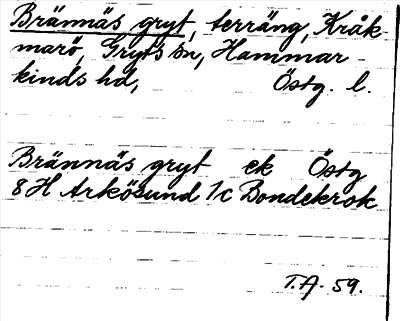 Brännäs gryt, terräng, Kråk-
marö, Gryts sn, Hammar-
kinds hd, Östg. l.
Brännäs gryt ek Östg
8H Arkösund 1c Bondekrok
T.A. 59.